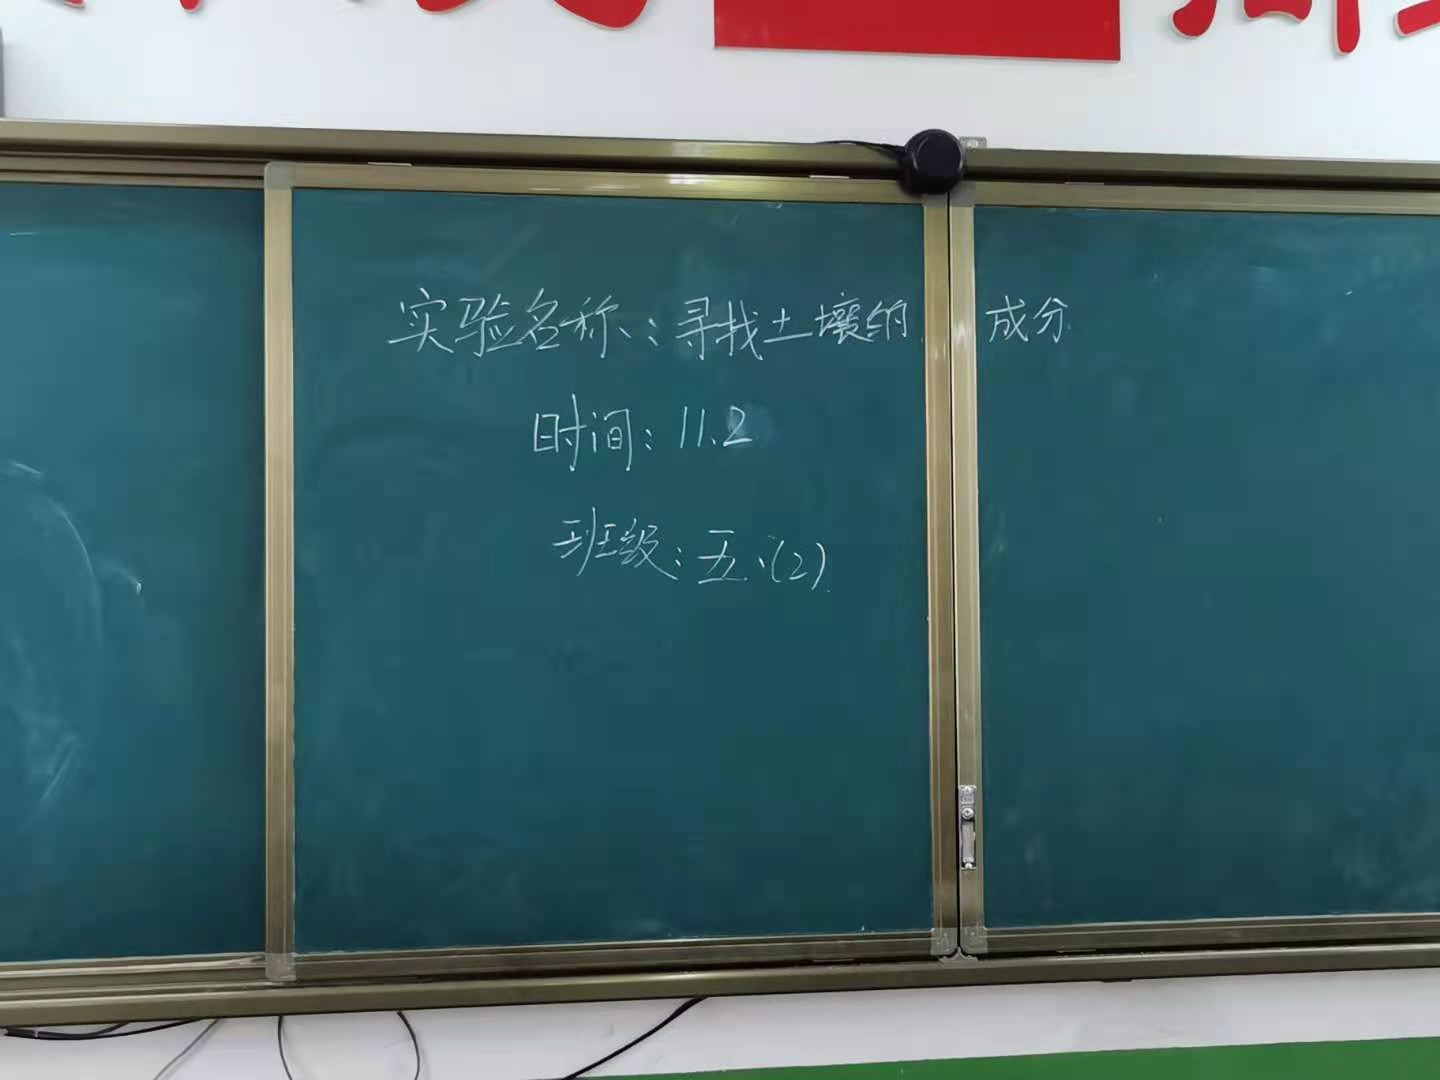 实验名称：寻找土壤的成分
时间：11.2
班级：五、(2)